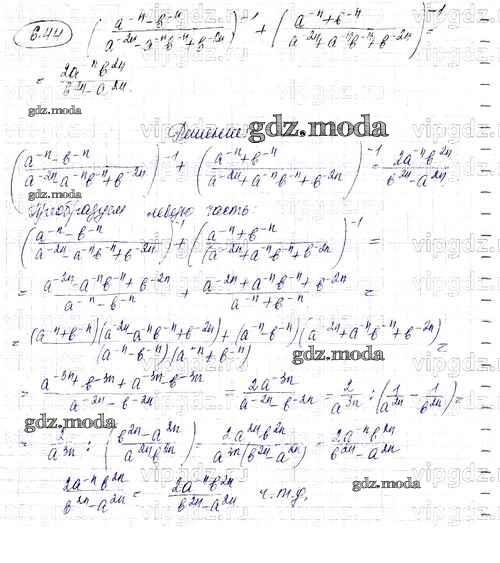 6.44 ((a⁻ⁿ-b⁻ⁿ)/(a⁻²ⁿ-a⁻ⁿb⁻ⁿ+b⁻²ⁿ))⁻¹ + ((a⁻ⁿ+b⁻ⁿ)/(a⁻²ⁿ+a⁻ⁿb⁻ⁿ+b⁻²ⁿ))⁻¹ =
= 2a⁻ⁿb²ⁿ/(b²ⁿ-a²ⁿ).
gdz.moda
Решение: gdz.moda
((a⁻ⁿ-b⁻ⁿ)/(a⁻²ⁿ-a⁻ⁿb⁻ⁿ+b⁻²ⁿ))⁻¹ + ((a⁻ⁿ+b⁻ⁿ)/(a⁻²ⁿ+a⁻ⁿb⁻ⁿ+b⁻²ⁿ))⁻¹ = 2a⁻ⁿb²ⁿ/(b²ⁿ-a²ⁿ)
gdz.moda
Преобразуем левую часть:
((a⁻ⁿ-b⁻ⁿ)/(a⁻²ⁿ-a⁻ⁿb⁻ⁿ+b⁻²ⁿ))⁻¹ + ((a⁻ⁿ+b⁻ⁿ)/(a⁻²ⁿ+a⁻ⁿb⁻ⁿ+b⁻²ⁿ))⁻¹ =
= (a⁻²ⁿ-a⁻ⁿb⁻ⁿ+b⁻²ⁿ)/(a⁻ⁿ-b⁻ⁿ) + (a⁻²ⁿ+a⁻ⁿb⁻ⁿ+b⁻²ⁿ)/(a⁻ⁿ+b⁻ⁿ) =
= ((a⁻ⁿ+b⁻ⁿ)(a⁻²ⁿ-a⁻ⁿb⁻ⁿ+b⁻²ⁿ)+(a⁻ⁿ-b⁻ⁿ)(a⁻²ⁿ+a⁻ⁿb⁻ⁿ+b⁻²ⁿ))/((a⁻ⁿ-b⁻ⁿ)(a⁻ⁿ+b⁻ⁿ)) =
gdz.moda
= (a⁻³ⁿ+b⁻³ⁿ+a⁻³ⁿ-b⁻³ⁿ)/(a⁻²ⁿ-b⁻²ⁿ) = 2a⁻³ⁿ/(a⁻²ⁿ-b⁻²ⁿ) = 2/a³ⁿ : (1/a²ⁿ - 1/b²ⁿ) =
gdz.moda
= 2/a³ⁿ : ((b²ⁿ-a²ⁿ)/(a²ⁿb²ⁿ)) = 2a²ⁿb²ⁿ/(a³ⁿ(b²ⁿ-a²ⁿ)) = 2a⁻ⁿb²ⁿ/(b²ⁿ-a²ⁿ)
2a⁻ⁿb²ⁿ/(b²ⁿ-a²ⁿ) = 2a⁻ⁿb²ⁿ/(b²ⁿ-a²ⁿ) ч.т.д.
gdz.moda